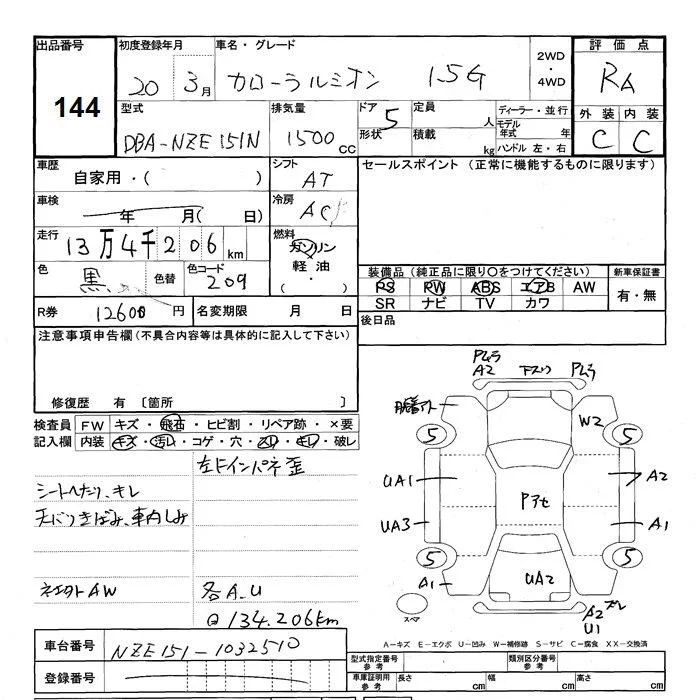 出品番号 初度登録年月 車名・グレード 2WD・4WD 評価点
144 20 3月 カローラルミオン 1.5G RA
型式 排気量 ドア 5 定員 人 ディーラー・並行 外装 内装
DBA-NZE151N 1500cc 形状 積載 kg モデル年式 年 ハンドル 左・右 C C
車歴 シフト セールスポイント (正常に機能するものに限ります)
自家用・( ) AT
車検 冷房
年 月( 日) AC
走行 燃料
13万4千206km ガソリン
色 黒 色替 色コード 209 軽油・( ) 装備品 (純正品に限り〇をつけてください) 新車保証書
PS PW ABS エアB AW 有・無
SR ナビ TV カワ
R券 12600円 名変期限 月 日 後日品
注意事項申告欄 (不具合内容等は具体的に記入して下さい)
修復歴 有 〔箇所 〕
検査員 FW キズ・飛石・ヒビ割・リペア跡・×要
記入欄 内装 キズ・汚れ・コゲ・穴・スレ・キレ・破レ
左ドインパネ歪
シートへたり、キレ
天バリきばみ、車内しみ
ネエクトAW 各A.U
134.206km
Pムラ
A2 下スリ Pムラ
W2
5 5
UA1 A2
Pアセ
UA3 A1
5 5
A1 UA2
スペア A2 ズレ
U1
A-キズ E-エクボ U-凹み W-補修跡 S-サビ C-腐食 XX-交換済
車台番号 NZE151-1032510
型式指定番号 参考 類別区分番号 参考
登録番号 車庫証明用 参考 長さ cm 幅 cm 高さ cm